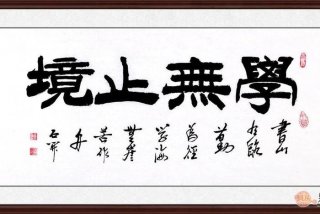 學無止境
書山
有路
勤
為徑
學海
無崖
苦作
舟